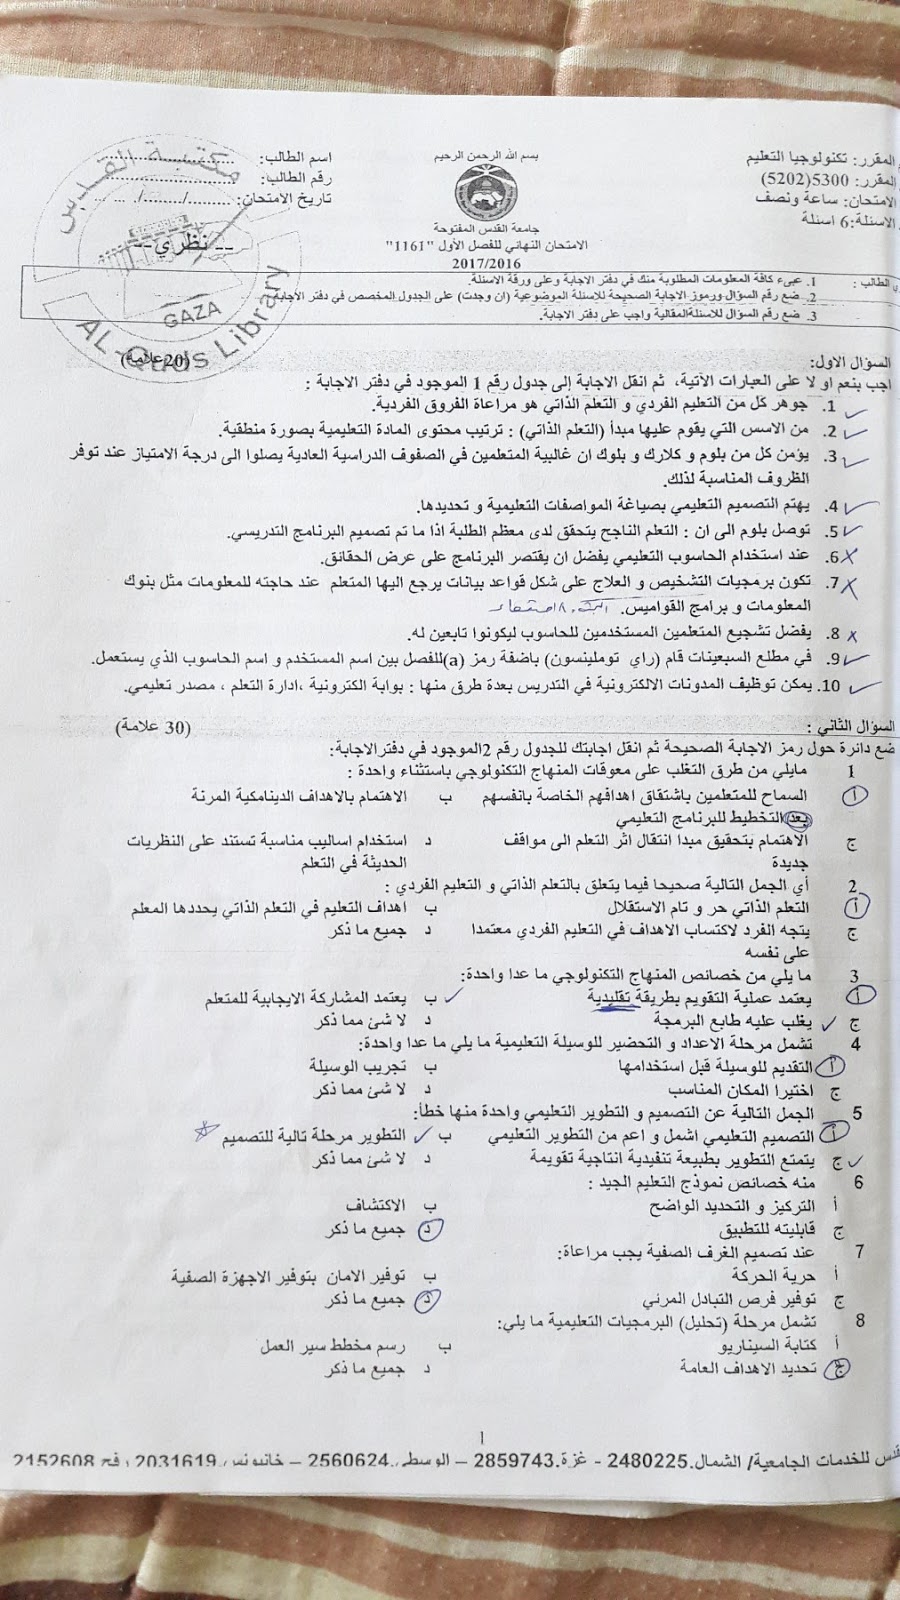 بسم الله الرحمن الرحيم
جامعة القدس المفتوحة
الامتحان النهائي للفصل الأول "1161"
2017/2016
المقرر: تكنولوجيا التعليم
المقرر: 5300(5202)
الامتحان: ساعة ونصف
الاسئلة: 6 اسئلة
اسم الطالب:
رقم الطالب:
تاريخ الامتحان:
-- نظري --
مكتبة القدس
GAZA
AL-Quds Library
الطالب :
1. عبىء كافة المعلومات المطلوبة منك في دفتر الاجابة وعلى ورقة الاسئلة.
2. ضع رقم السؤال ورموز الاجابة الصحيحة للاسئلة الموضوعية (ان وجدت) على الجدول المخصص في دفتر الاجابة
3. ضع رقم السؤال للاسئلة المقالية واجب على دفتر الاجابة.
السؤال الاول: (20علامة)
اجب بنعم او لا على العبارات الآتية، ثم انقل الاجابة إلى جدول رقم 1 الموجود في دفتر الاجابة :
1. جوهر كل من التعليم الفردي و التعلم الذاتي هو مراعاة الفروق الفردية.
2. من الاسس التي يقوم عليها مبدأ (التعلم الذاتي) : ترتيب محتوى المادة التعليمية بصورة منطقية.
3. يؤمن كل من بلوم و كلارك و بلوك ان غالبية المتعلمين في الصفوف الدراسية العادية يصلوا الى درجة الامتياز عند توفر
الظروف المناسبة لذلك.
4. يهتم التصميم التعليمي بصياغة المواصفات التعليمية و تحديدها.
5. توصل بلوم الى ان : التعلم الناجح يتحقق لدى معظم الطلبة اذا ما تم تصميم البرنامج التدريسي.
6. عند استخدام الحاسوب التعليمي يفضل ان يقتصر البرنامج على عرض الحقائق.
7. تكون برمجيات التشخيص و العلاج على شكل قواعد بيانات يرجع اليها المتعلم عند حاجته للمعلومات مثل بنوك
المعلومات و برامج القواميس.
8. يفضل تشجيع المتعلمين المستخدمين للحاسوب ليكونوا تابعين له.
9. في مطلع السبعينات قام (راي توملينسون) باضفة رمز (a)للفصل بين اسم المستخدم و اسم الحاسوب الذي يستعمل.
10. يمكن توظيف المدونات الالكترونية في التدريس بعدة طرق منها : بوابة الكترونية ،ادارة التعلم ، مصدر تعليمي.
السؤال الثاني : (30 علامة)
ضع دائرة حول رمز الاجابة الصحيحة ثم انقل اجابتك للجدول رقم 2الموجود في دفترالاجابة:
1 مايلي من طرق التغلب على معوقات المنهاج التكنولوجي باستثناء واحدة :
أ السماح للمتعلمين باشتقاق اهدافهم الخاصة بانفسهم ب الاهتمام بالاهداف الدينامكية المرنة
بعد التخطيط للبرنامج التعليمي
ج الاهتمام بتحقيق مبدا انتقال اثر التعلم الى مواقف د استخدام اساليب مناسبة تستند على النظريات
جديدة الحديثة في التعلم
2 أي الجمل التالية صحيحا فيما يتعلق بالتعلم الذاتي و التعليم الفردي :
أ التعلم الذاتي حر و تام الاستقلال ب اهداف التعليم في التعلم الذاتي يحددها المعلم
ج يتجه الفرد لاكتساب الاهداف في التعليم الفردي معتمدا د جميع ما ذكر
على نفسه
3 ما يلي من خصائص المنهاج التكنولوجي ما عدا واحدة:
أ يعتمد عملية التقويم بطريقة تقليدية ب يعتمد المشاركة الايجابية للمتعلم
ج يغلب عليه طابع البرمجة د لا شئ مما ذكر
4 تشمل مرحلة الاعداد و التحضير للوسيلة التعليمية ما يلي ما عدا واحدة:
أ التقديم للوسيلة قبل استخدامها ب تجريب الوسيلة
ج اختيرا المكان المناسب د لا شئ مما ذكر
5 الجمل التالية عن التصميم و التطوير التعليمي واحدة منها خطأ:
أ التصميم التعليمي اشمل و اعم من التطوير التعليمي ب التطوير مرحلة تالية للتصميم
ج يتمتع التطوير بطبيعة تنفيدية انتاجية تقويمة د لا شئ مما ذكر
6 منه خصائص نموذج التعليم الجيد :
أ التركيز و التحديد الواضح ب الاكتشاف
ج قابليته للتطبيق د جميع ما ذكر
7 عند تصميم الغرف الصفية يجب مراعاة:
أ حرية الحركة ب توفير الامان بتوفير الاجهزة الصفية
ج توفير فرص التبادل المرئي د جميع ما ذكر
8 تشمل مرحلة (تحليل) البرمجيات التعليمية ما يلي:
أ كتابة السيناريو ب رسم مخطط سير العمل
ج تحديد الاهداف العامة د جميع ما ذكر
1
للخدمات الجامعية/ الشمال.2480225 - غزة.2859743 – الوسطى.2560624 – خانيونس.2031619 رفح 2152608